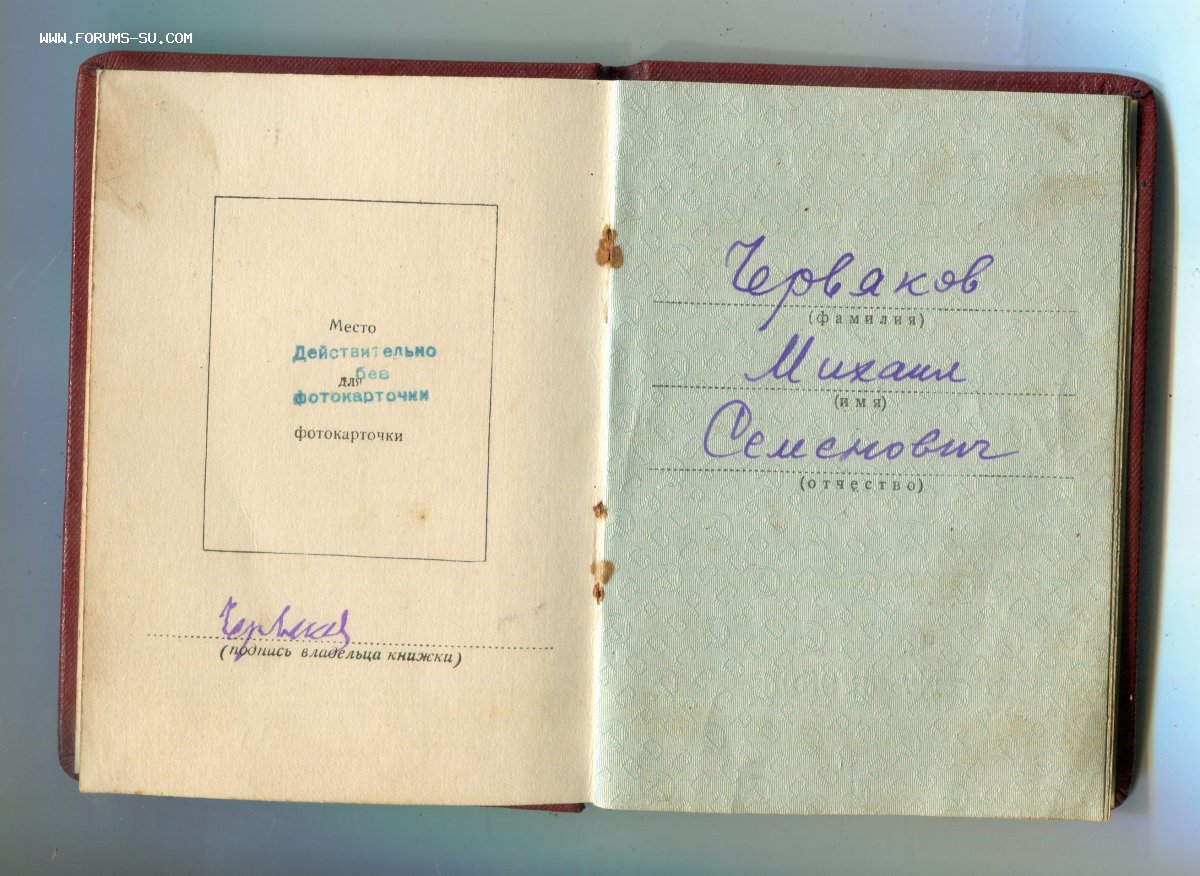 WWW.FORUMS-SU.COM
Место
Действительно
для
без
фотокарточки
фотокарточки
Червяков
(подпись владельца книжки)
Червяков
(фамилия)
Михаил
(имя)
Семенович
(отчество)